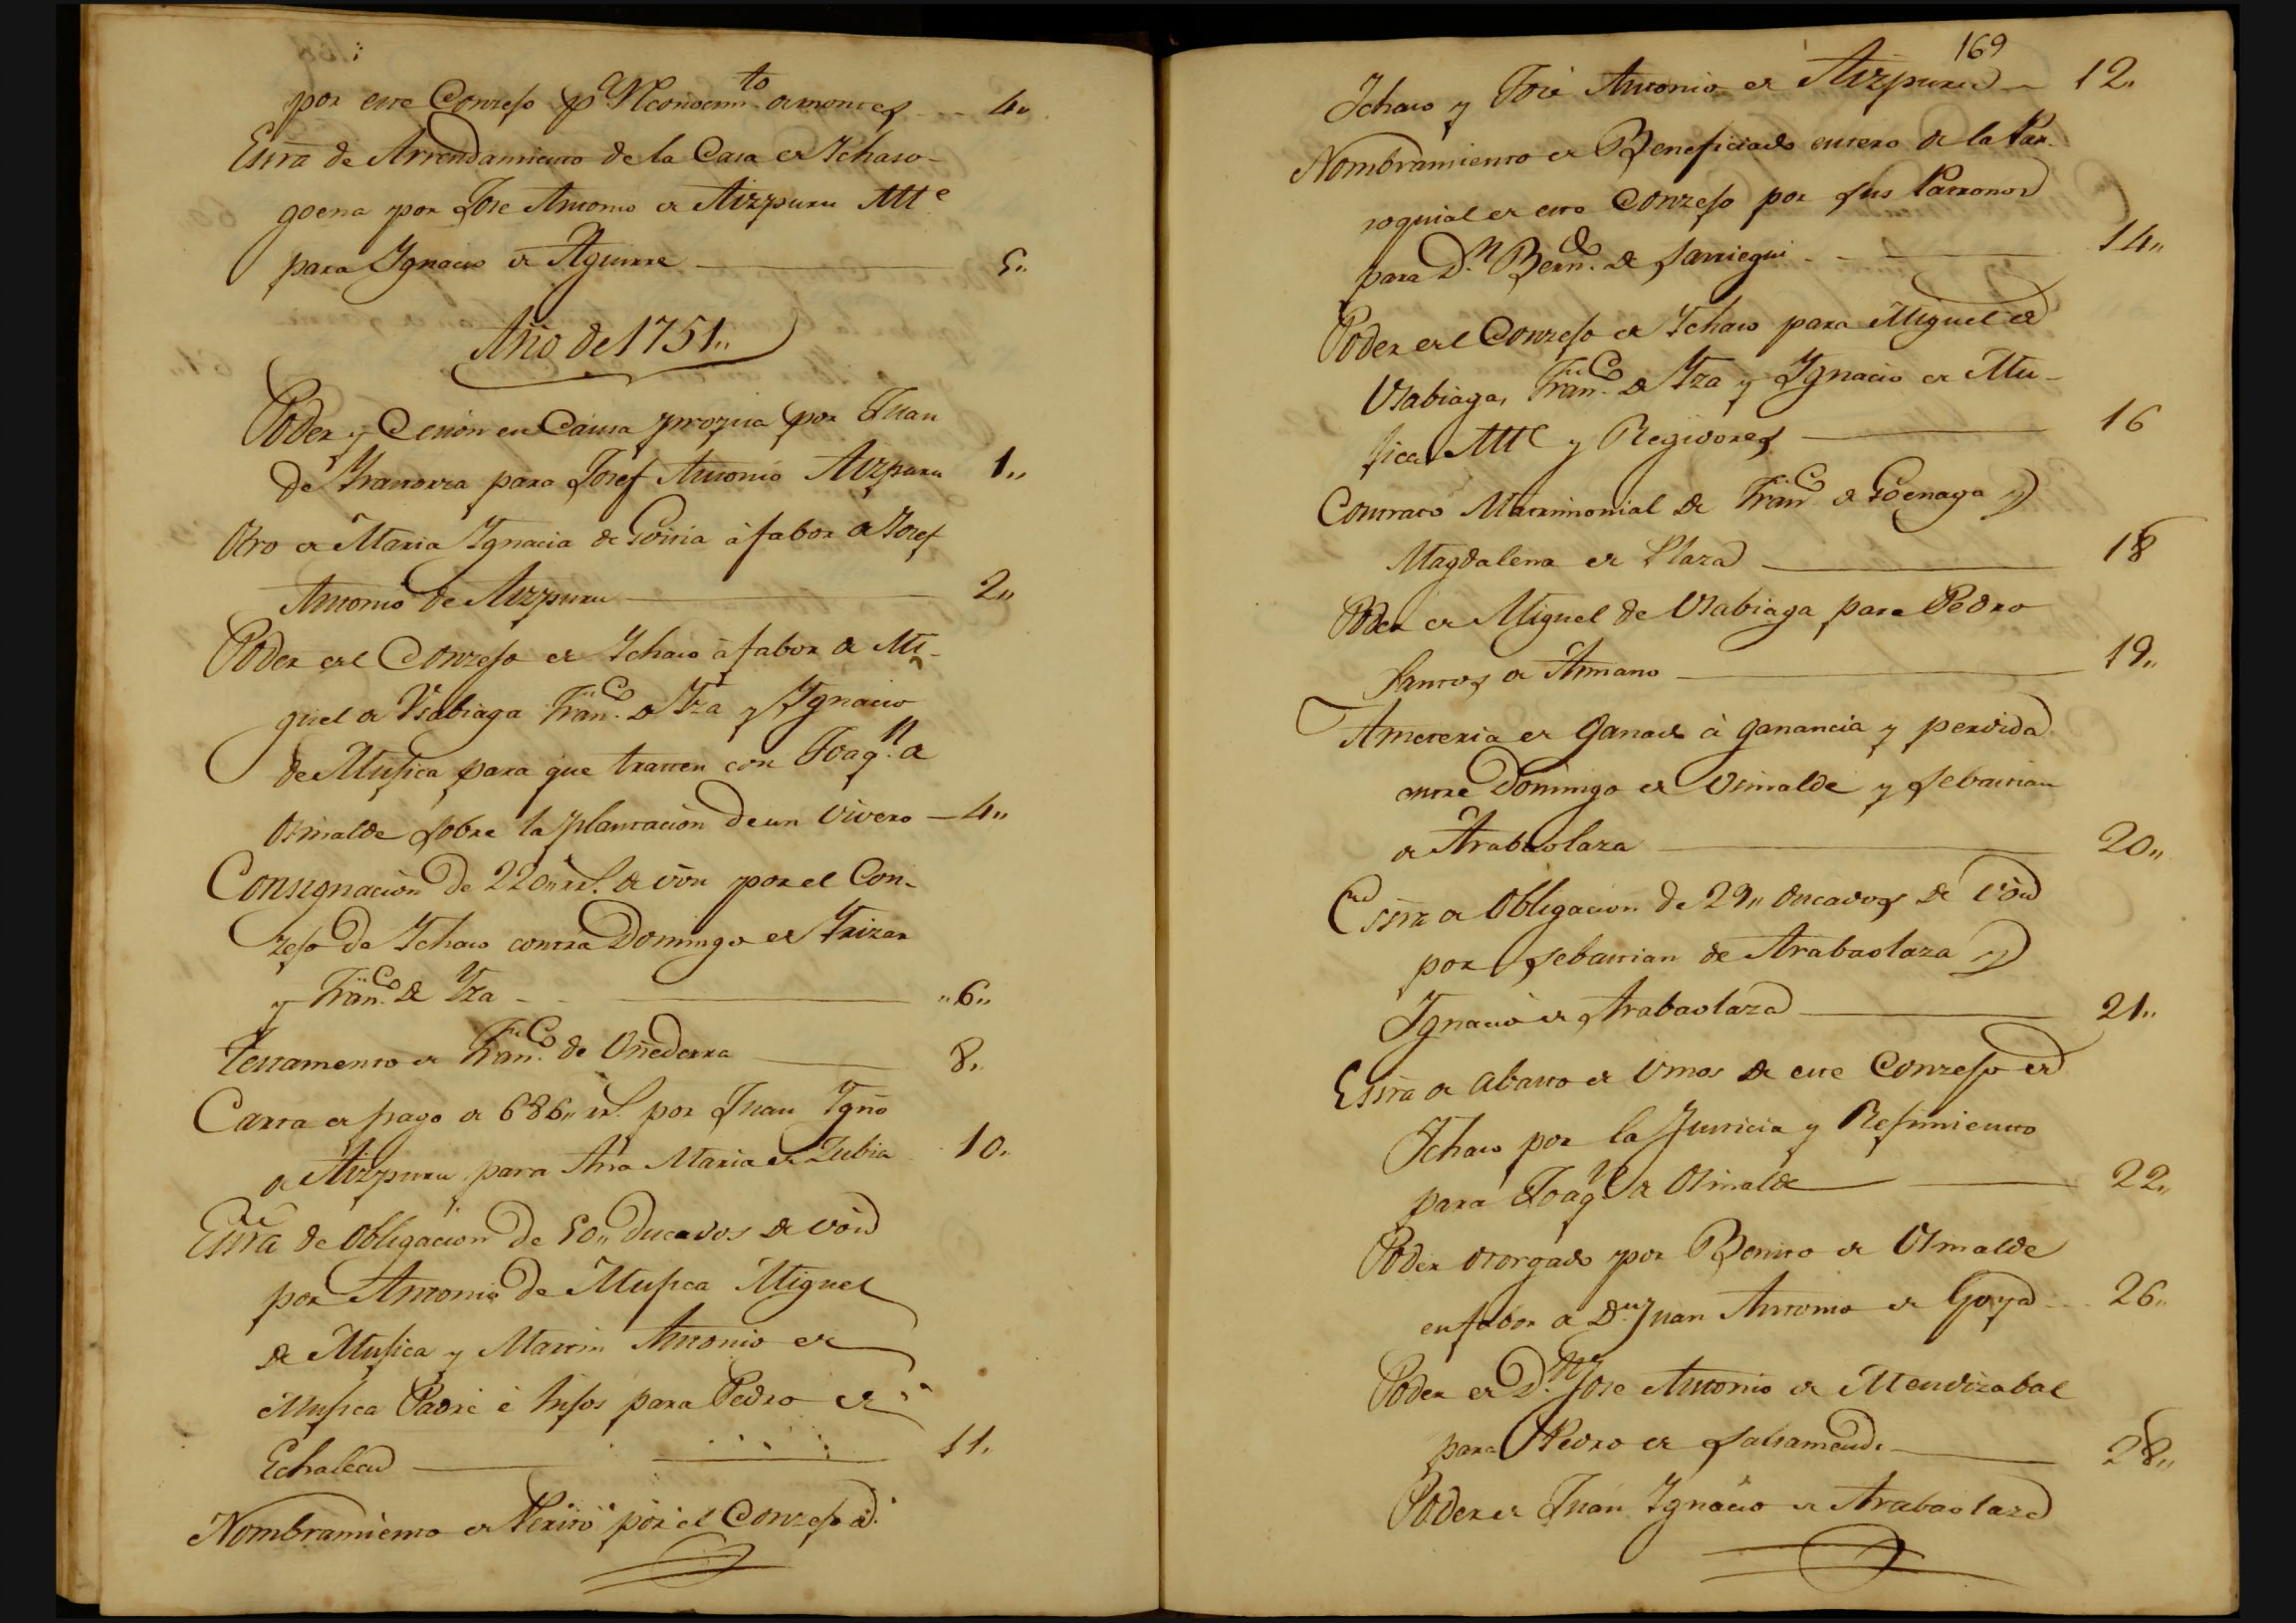 por este Conzejo pª Reconocimto de montes -- 4"
Essrª de Arrendamiento de la Casa de Ichaso-
goena por Jose Antonio de Aizpuru Alle
para Ignacio de Aguirre 5"
Año de 1751"
Poder y Cesion en Causa propria por Juan
de Yranorza para Josef Antonio Aizpuru 1"
Otro de Maria Ignacia de Goiria à fabor de Josef
Antonio de Aizpuru 2"
Poder del Conzejo de Ichaso à fabor de Mi-
guel de Vsabiaga Franco de Yza y Ignacio
de Mujica para que tratten con Joaqn de
Osinalde sobre la plantacion de un vivero 4"
Consignacion de 220" rrs. de von por el Con-
zejo de Ichaso contra Domingo de Yrizar
y Franco de Yza "6"
Testamento de Franco de Oñederra 8"
Carta de pago de 686" rrs. por Juan Igno
de Aizpuru para Ana Maria de Zubia 10"
Essrª de Obligacion de 50" Ducados de von
por Antonio de Mujica Miguel
de Mujica y Martin Antonio de
Mujica Padre è hijos para Pedro de
Echalecu 11"
Nombramiento de Perito por el Conzejo de
169
Ichaso y José Antonio de Aizpuru 12"
Nombramiento de Beneficiado entero de la Par-
roquial de este Conzejo por sus Patronos
para Dn Berndo de Sarriegui 14"
Poder del Conzejo de Ichaso para Miguel de
Vsabiaga, Franco de Yza y Ignacio de Mu-
jica Alle y Regidores 16
Contrato Matrimonial de Franco de Goenaga y
Magdalena de Plaza 18
Poder de Miguel de Vsabiaga para Pedro
Santos de Amiano 19"
Ameteria de Ganado à ganancia y perdida
entre Domingo de Osinalde y Sebastian
de Arabaolaza 20"
Essrª de Obligacion de 29" ducados de von
por Sebastian de Arabaolaza y
Ignacio de Arabaolaza 21"
Essrª de Abasto de Vinos de este Conzejo de
Ichaso por la Justicia y Rejimiento
para Joaqn de Osinalde 22"
Poder otorgado por Benito de Osinalde
en fabor de Dn Juan Antonio de Goya 26"
Poder de Dn Jose Antonio de Mendizabal
para Pedro de Salsamendi 28"
Poder de Juan Ignacio de Arabaolaza